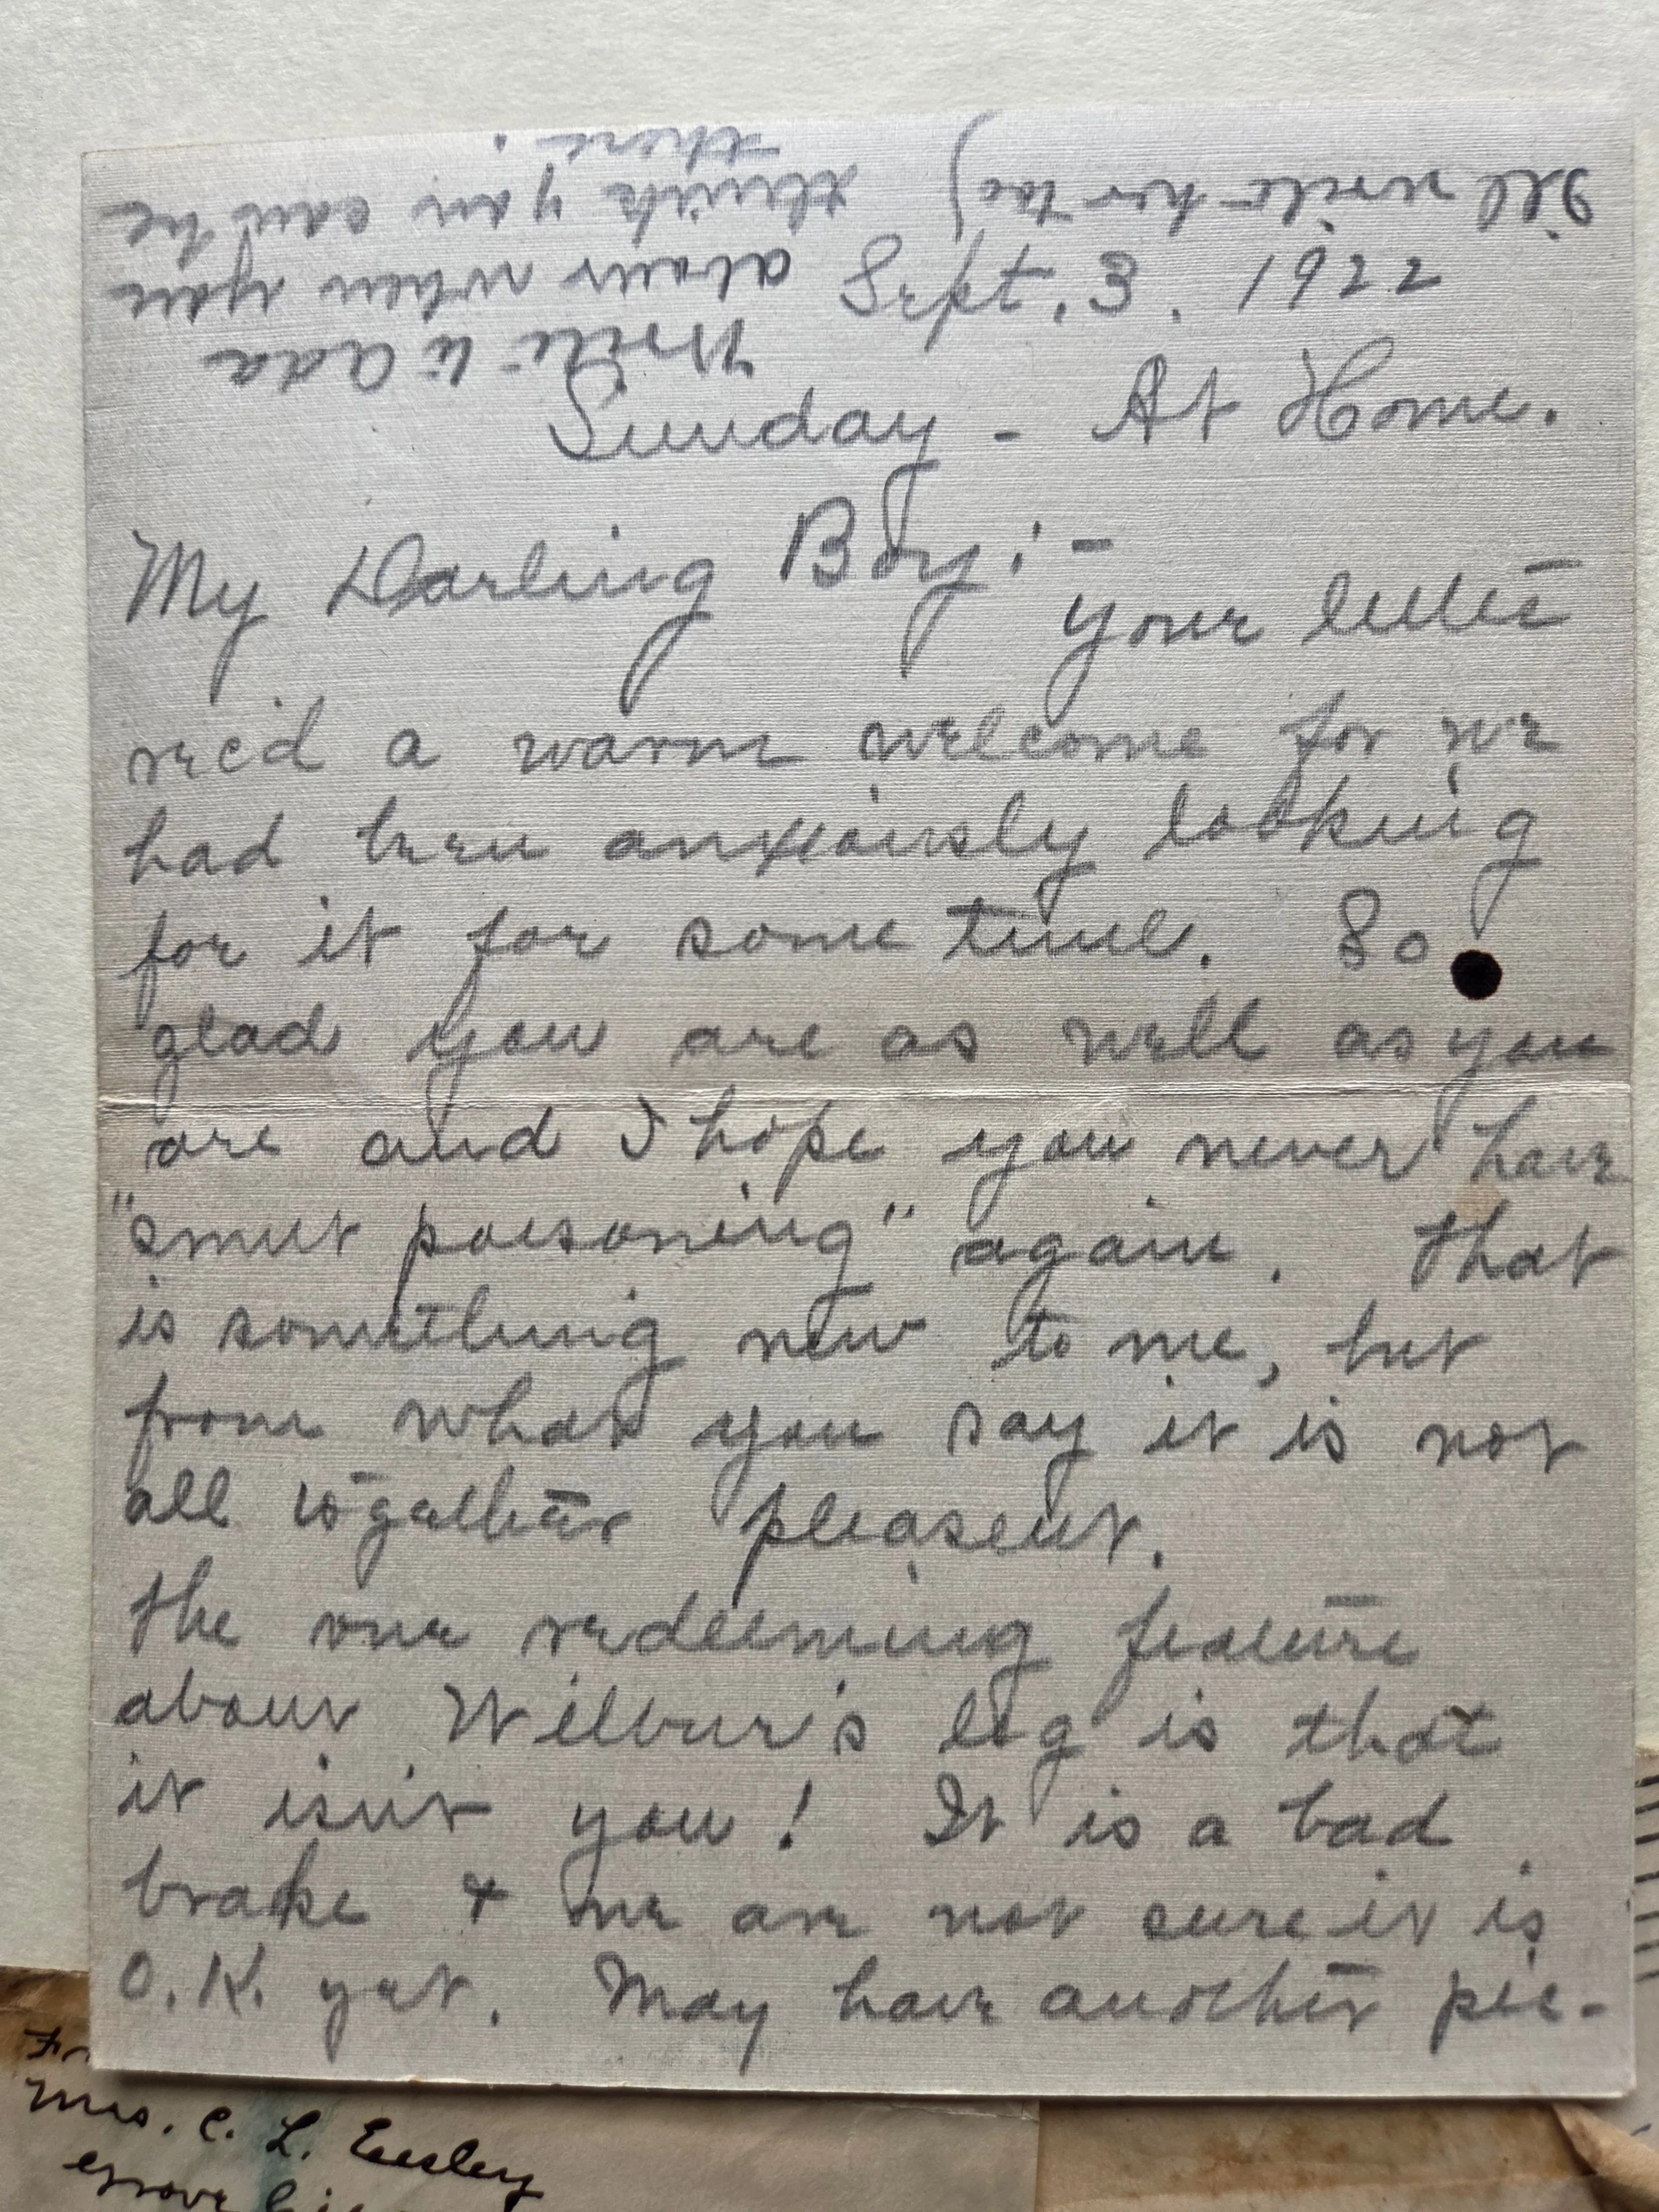 Sept. 3. 1922
Sunday - At Home.
My Darling Boy:-
Your letter
rec'd a warm welcome for we
had been anxiously looking
for it for some time. So
glad you are as well as you
are and I hope you never have
"smut poisoning" again. That
is something new to me, but
from what you say it is not
all togather pleasent.
The one redeeming feature
about Wilbur's leg is that
it isn't you! It is a bad
brake & we are not sure it is
O.K. yet. May have another pic-
Write to Ada
about when you
think you can be
there.
I'll write her too)
Mrs. C. L. Eesley
Grove